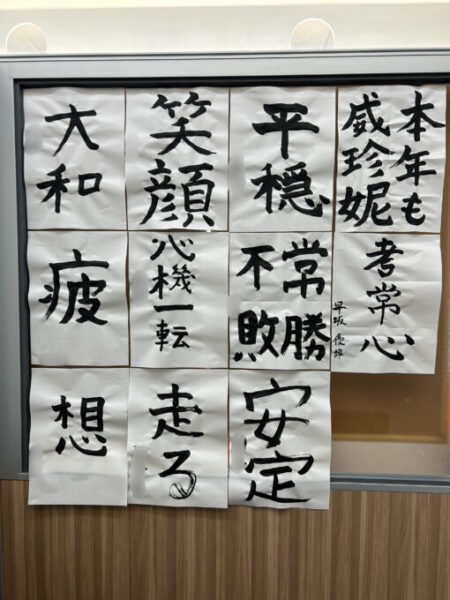 本年も
威珍妮
平穏
笑顔
大和
考常心
早坂
常勝
不敗
心機一転
疲
安定
走る
想